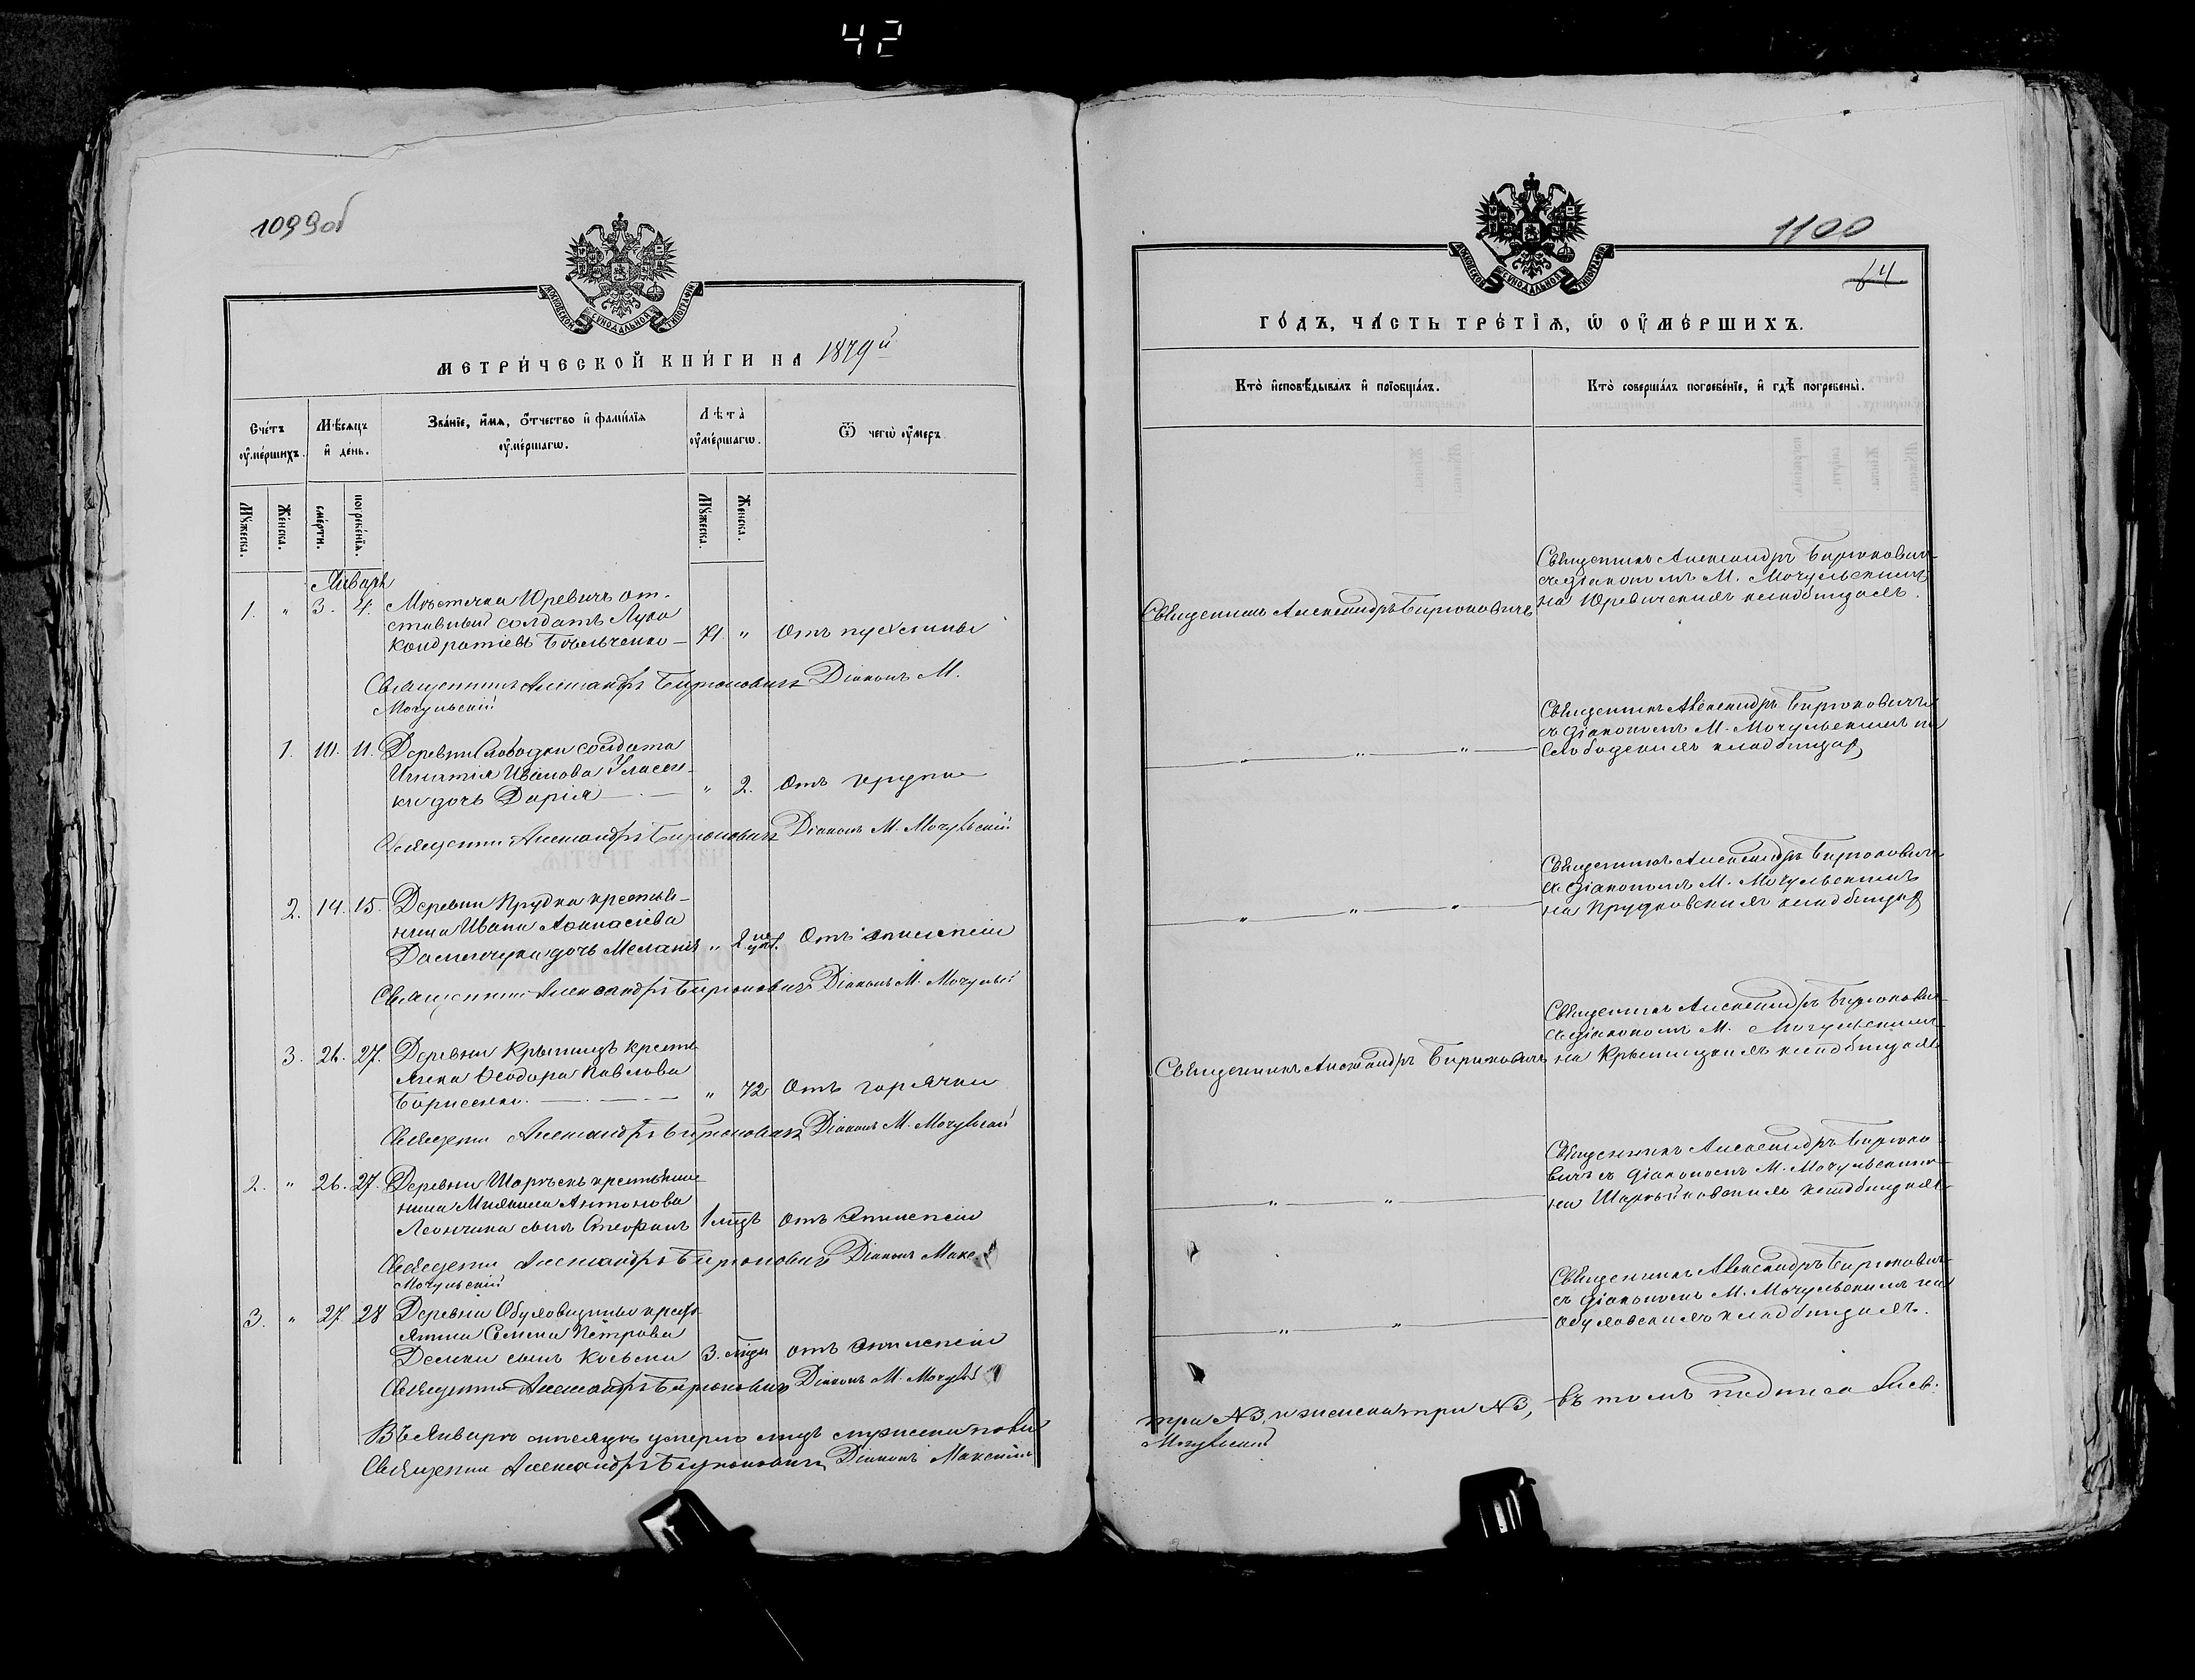 42
1099об
МОСКОВСКОЙ СУНОДАЛЬНОЙ ТИПОГРАФІИ
МЕТРИ́ЧЕСКОЙ КНИ́ГИ НА 1879й
Сче́тъ ᲂу҆ме́ршихъ.
Мѣ́сяцъ и҆ де́нь.
Зва́нїе, и҆́мѧ, ѻ҆́тчество и҆ фами́лїѧ ᲂу҆ме́ршагѡ.
Лѣ́та ᲂу҆ме́ршагѡ.
Ѿ чегѡ̀ ᲂу҆́меръ.
Мꙋ́жеска.
Же́нска.
сме́рти.
погребе́нїѧ.
Мꙋ́жеска.
Же́нска.
Январь
1. " 3. 4. Мѣстечка Юревичъ от-
ставный солдатъ Лука
Кондратіевъ Бѣльченко — 71 " Отъ пухлины
Священникъ Александръ Бирюковичъ Діаконъ М.
Мочульскій
1. 10. 11. Деревни Слободки солдата
Игнатія Иванова
дочь Дарія — " 2. Отъ крупа
Священникъ Александръ Бирюковичъ Діаконъ М. Мочульскій
2. 14. 15. Деревни Прудка крестья-
нина Ивана Афанасіева
дочь Меланія " 2 нед. Отъ эпилепсіи
Священникъ Александръ Бирюковичъ Діаконъ М. Мочульскій
3. 26. 27. Деревни Крышичъ кресть-
янка Ѳеодора Павлова
Борисенко. — " 72 Отъ горячки
Священникъ Александръ Бирюковичъ Діаконъ М. Мочульскій
2. " 26. 27. Деревни
Антонова
Леончика сынъ Стефанъ 1 годъ Отъ эпилепсіи
Священникъ Александръ Бирюковичъ Діаконъ Макс
Мочульскій
3. " 27 28 Деревни Обуховщины кресть-
янина Семена Петрова
сынъ Косьма 3. года отъ эпилепсіи
Священникъ Александръ Бирюковичъ Діаконъ М. Мочульскій
Въ Январѣ мѣсяцѣ умерло лицъ мужеска пола
Священникъ Александръ Бирюковичъ Діаконъ Максимъ
1100
64
МОСКОВСКОЙ СУНОДАЛЬНОЙ ТИПОГРАФІИ
ГО́ДЪ, ЧА́СТЬ ТРЕ́ТЇѦ, Ѡ҆ ОУ҆МЕ́РШИХЪ.
Кто̀ и҆сповѣ́дывалъ и҆ прїѡбща́лъ.
Кто̀ соверша́лъ погребе́нїе, и҆ гдѣ̀ погребены̀.
Священникъ Александръ Бирюковичъ
Священникъ Александръ Бирюковичъ
съ діакономъ М. Мочульскимъ
на Юревичскихъ кладбищахъ.
" " "
Священникъ Александръ Бирюковичъ
съ діакономъ М. Мочульскимъ на
Слободскихъ кладбищахъ
" " "
Священникъ Александръ Бирюковичъ
съ діакономъ М. Мочульскимъ
на Прудковскихъ кладбищахъ
Священникъ Александръ Бирюковичъ
Священникъ Александръ Бирюкович
съ діакономъ М. Мочульскимъ
на Крышицкихъ кладбищахъ
" "
Священникъ Александръ Бирюко-
вичъ съ діакономъ М. Мочульскимъ
на кладбищахъ
" "
Священникъ Александръ Бирюковичъ
съ діакономъ М. Мочульскимъ на
Обуховскихъ кладбищахъ.
три №3, и женска три №3, въ томъ
Мочульскій